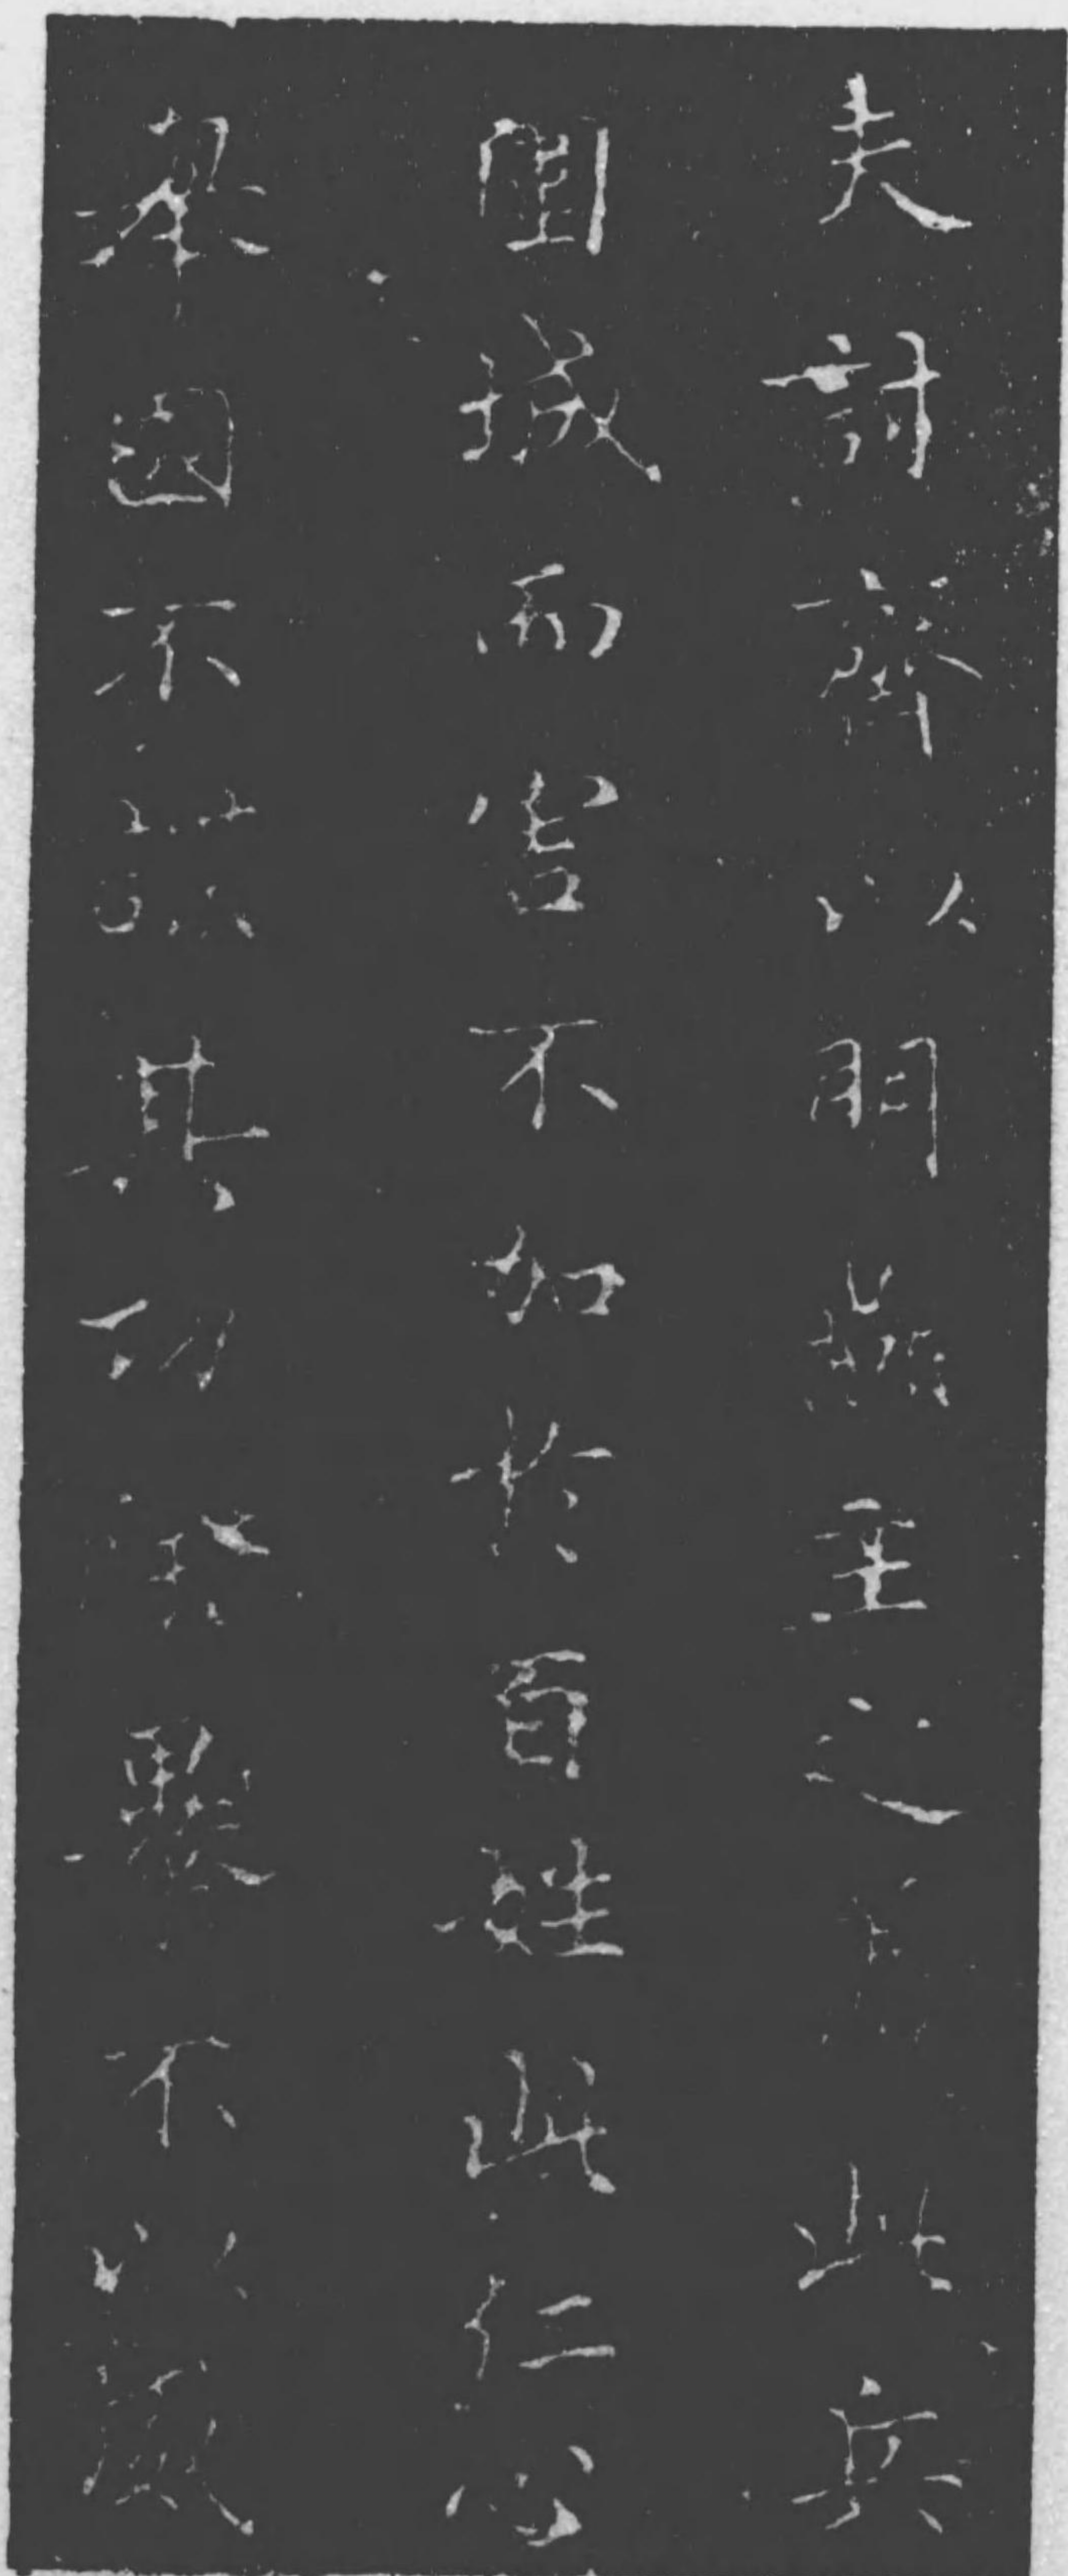 夫討齊以明燕主之義此兵
圍城而害不加於百姓此仁心
舉國不謀其功除暴不以威